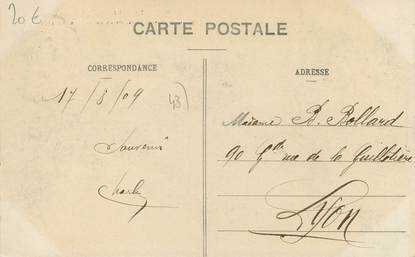 20 €
CARTE POSTALE
CORRESPONDANCE
ADRESSE
17/8/09
43
Souvenir
Charles
Madame B. Rollard
90 Gde rue de la Guillotière
Lyon